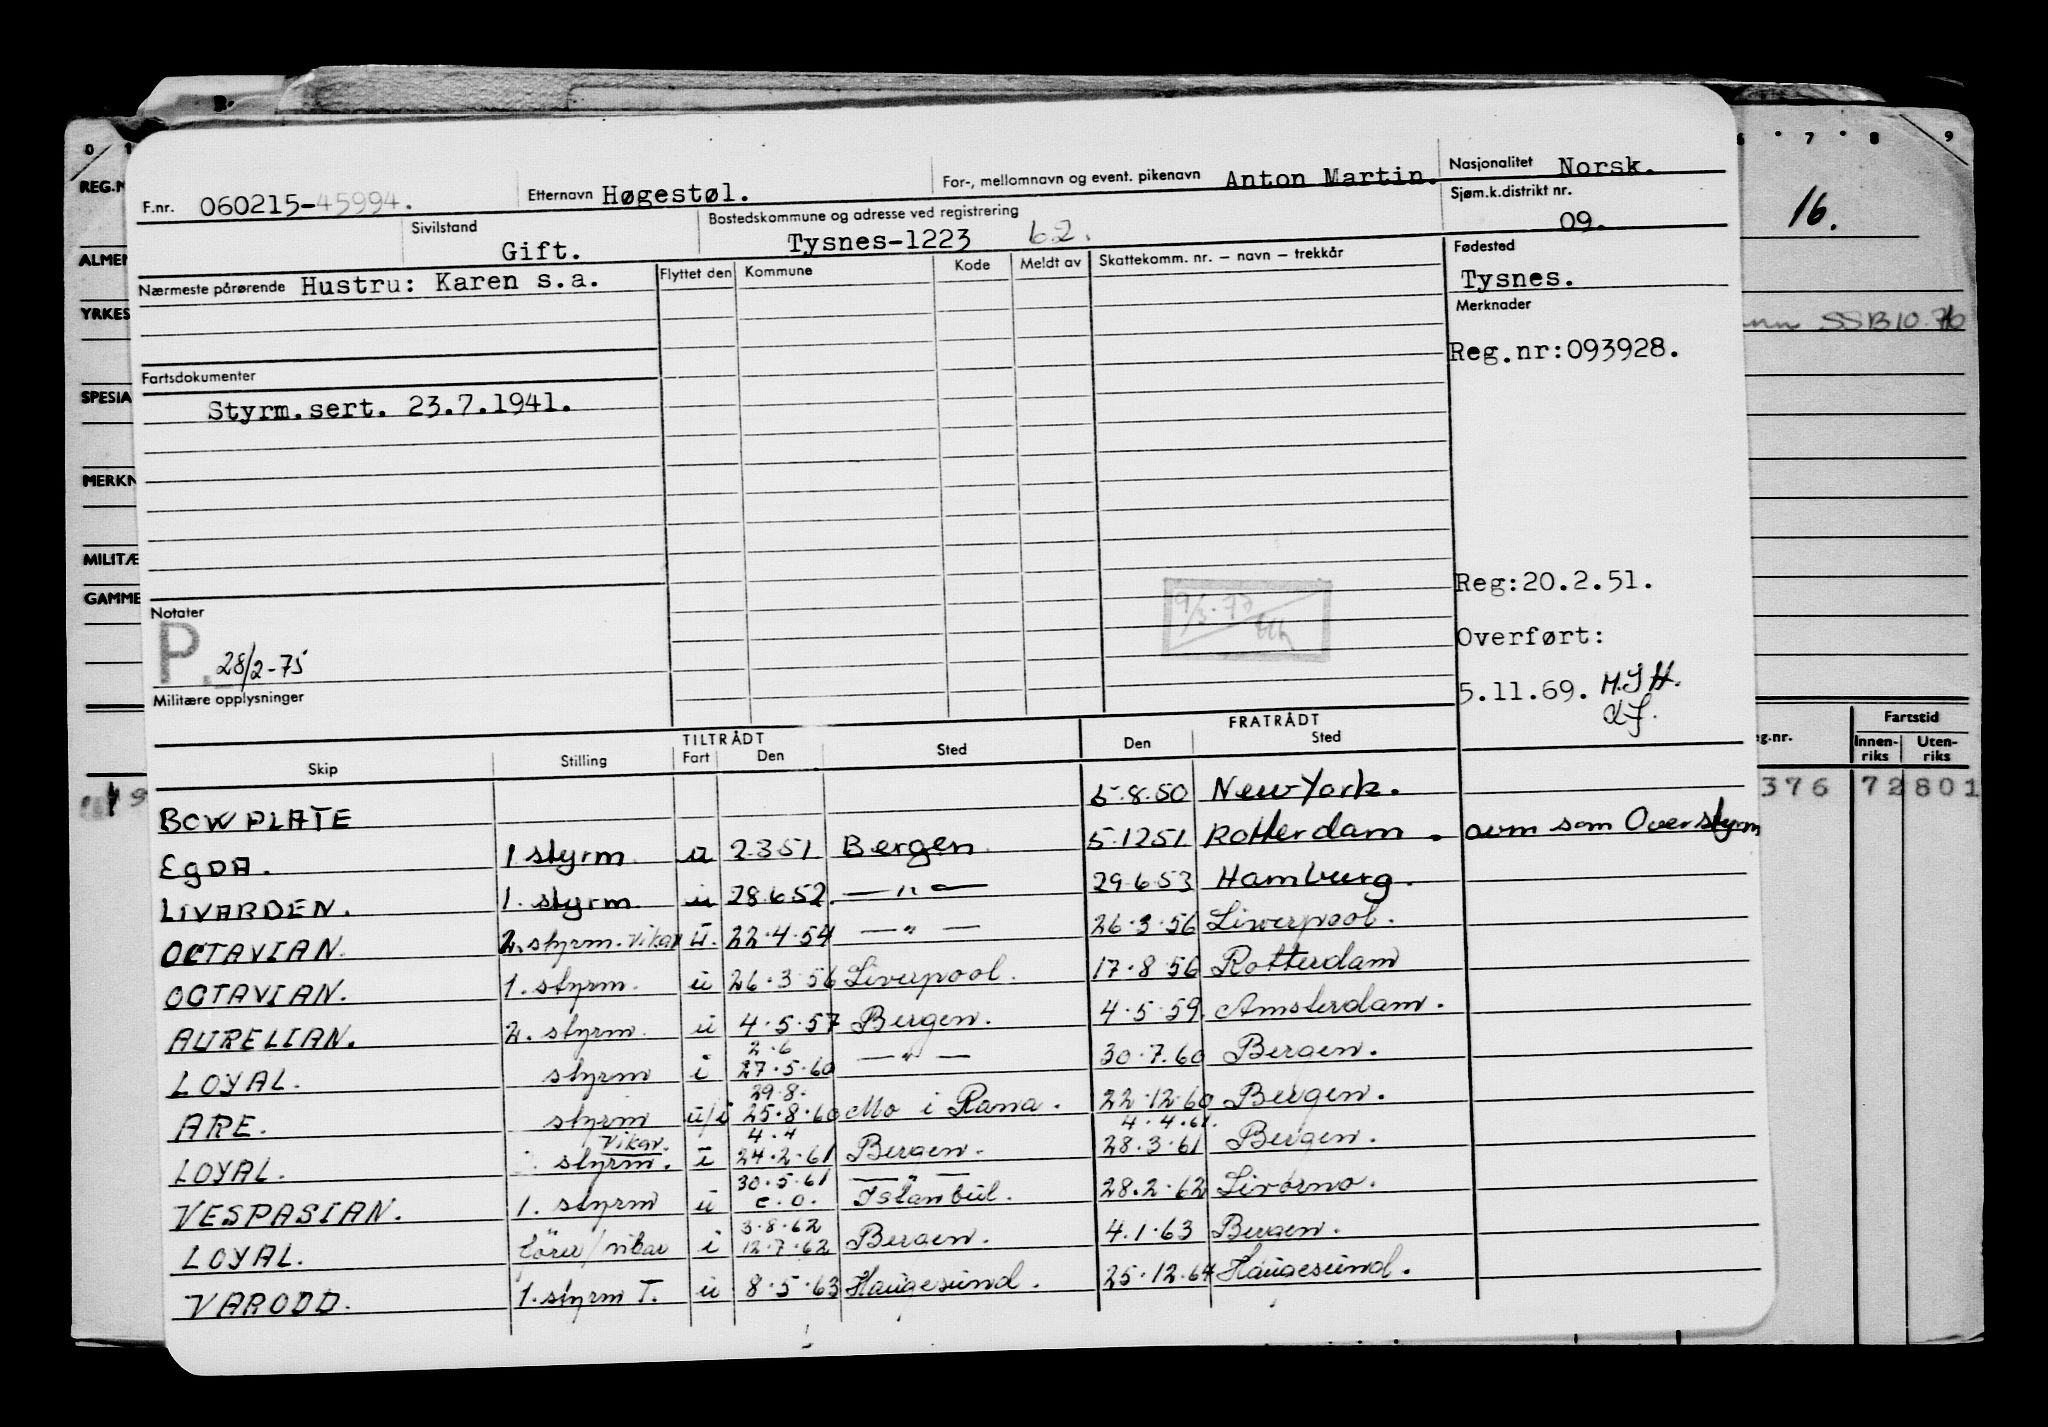 F.nr. 060215-45994. Etternavn Høgestøl. For-, mellomnavn og event. pikenavn Anton Martin. Nasjonalitet Norsk.
Sivilstand Gift. Bostedskommune og adresse ved registrering Tysnes-1223 62. Sjøm.k.distrikt nr. 09.
Nærmeste pårørende Hustru: Karen s.a. Flyttet den Kommune Kode Meldt av Skattekomm. nr. – navn – trekkår Fødested
Tysnes.
Merknader
Reg.nr:093928.
Fartsdokumenter
Styrm.sert. 23.7.1941.
Reg:20.2.51.
Notater
Overført:
P. 28/2-75
5.11.69. H.J H.
Militære opplysninger
TILTRÅDT FRATRÅDT
Skip Stilling Fart Den Sted Den Sted
BOW PLATE 5.8.50 New York.
EgDA. 1 styrm u 2351 Bergen 5.1251 Rotterdam. avm som Overstyrm
LIVARDEN. 1. styrm u 28652. —"— 29.6.53 Hamburg.
OCTAVIAN. 2. styrm. vikar u. 22.4.54 —"— 26.3.56 Liverpool.
OCTAVIAN. 1. styrm. u 26.3.56 Liverpool. 17.8.56 Rotterdam
AURELIAN. 2. styrm. u 4.5.57 Bergen. 4.5.59. Amsterdam.
2.6
LOYAL. styrm i 27.5.60 —"— 30.7.60 Bergen.
29.8.
ARE. styrm u/i 25.8.60 Mo i Rana. 22.12.60 Bergen.
Vikar. 4.4 4.4.61.
LOYAL. 2. styrm. i 24.2.61 Bergen. 28.3.61 Bergen.
30.5.61 —"—
VESPASIAN. 1. styrm u e.o. Istanbul. 28.2.62 Livorno.
3.8.62
LOYAL. fører/vikar i 12.7.62 Bergen. 4.1.63 Bergen.
VARODD. 1. styrm T. u 8.5.63 Haugesund. 25.12.64 Haugesund.
0 1
REG.N
ALMEN
YRKES
SPESIA
MERKN
MILITÆ
GAMME
6 7 8 9
16.
SSB 10.76
g.nr. Fartstid
Innen-riks Uten-riks
376 72 801